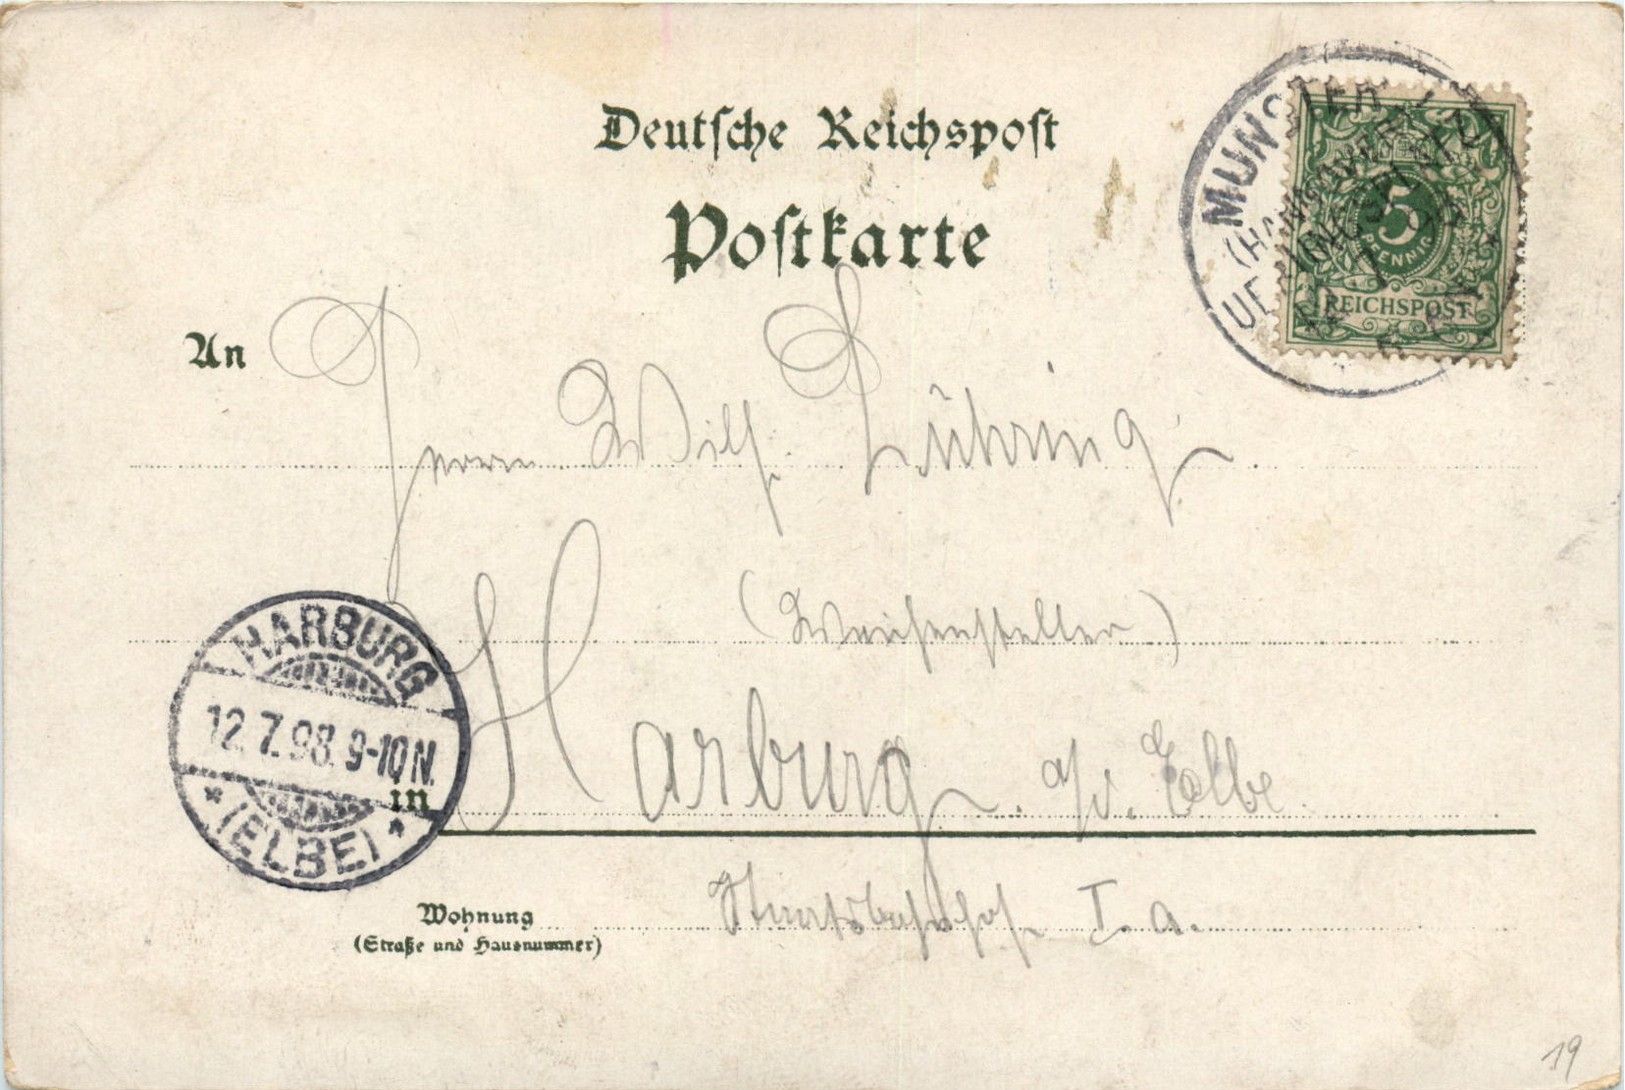 Deutsche Reichspost
Postkarte
MUNSTER
(HANNOVER)
5
PFENNIG
REICHSPOST
An
Herrn Wilh. Lühring
(Weichensteller)
HARBURG
12.7.98. 9-10 N.
(ELBE)
in Harburg a/d. Elbe.
Wohnung
(Straße und Hausnummer)
Staatsbahnhof I. a.
19